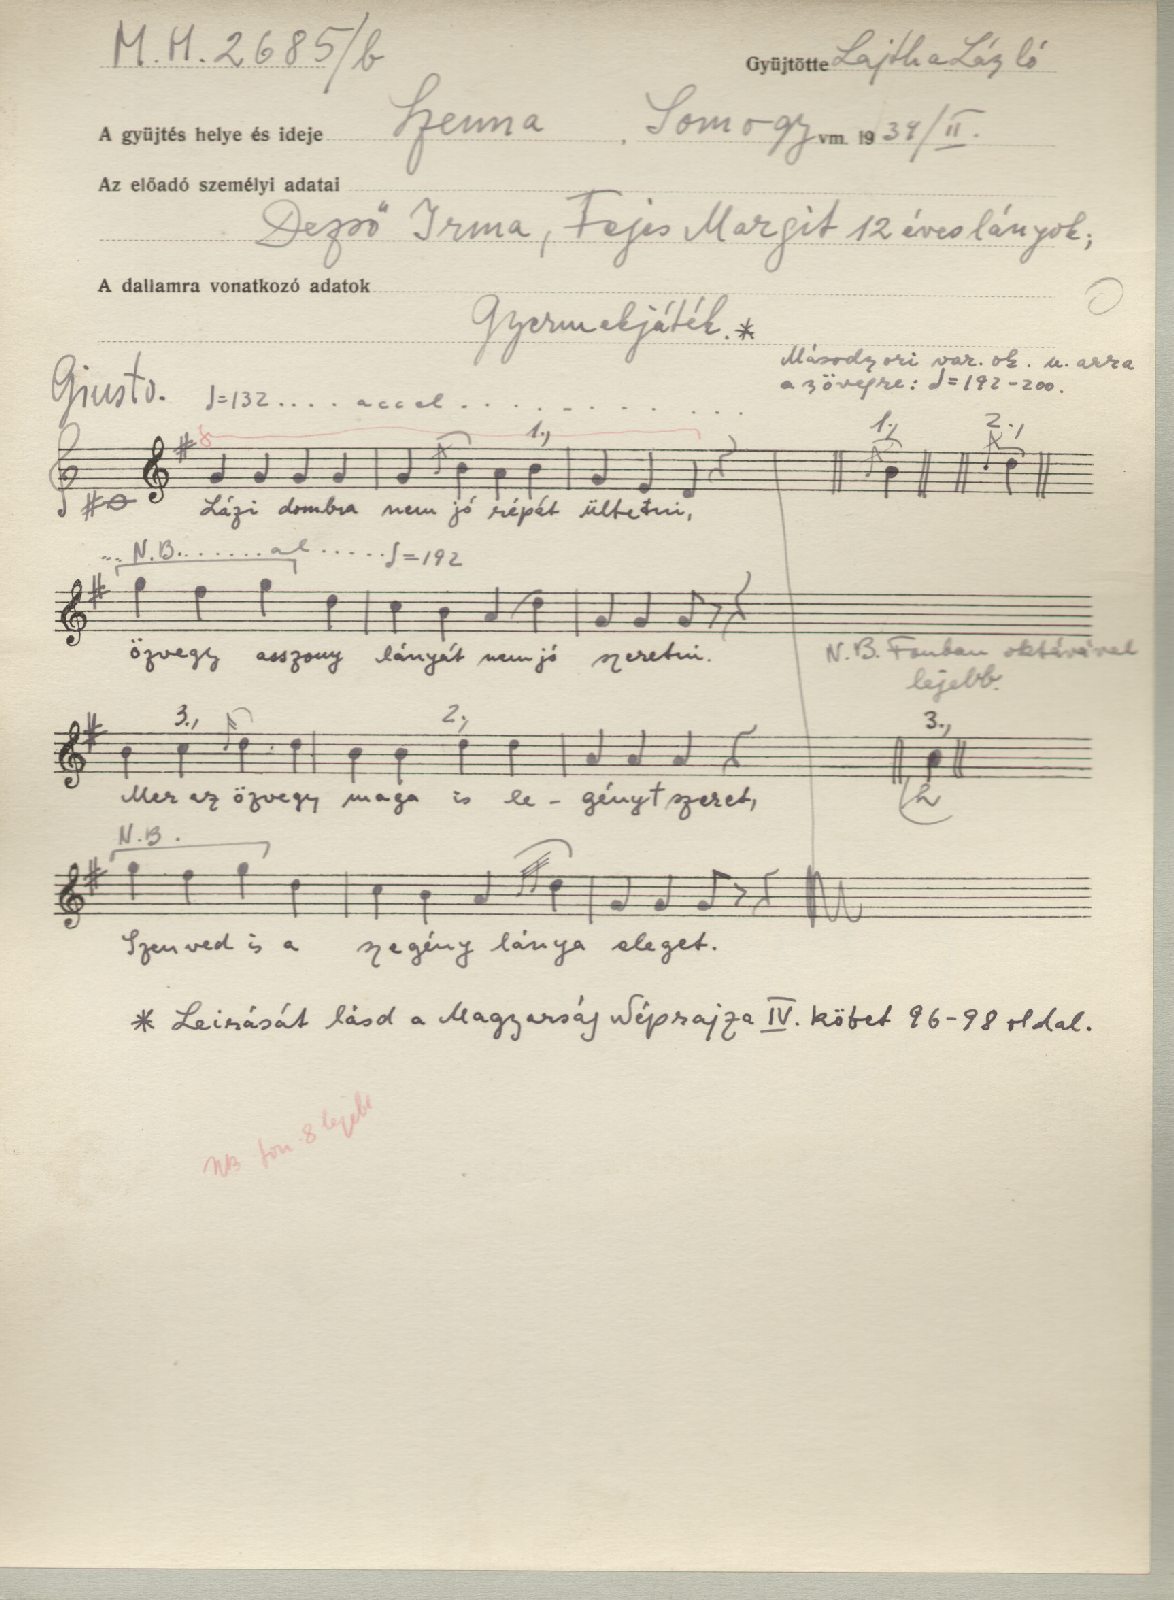 M.H. 2685/b
Gyüjtötte Lajtha László
A gyüjtés helye és ideje Szenna . Somogy vm. 19 /II.
Az előadó személyi adatai
Dezső Irma, Fejes Margit 12 éves lányok;
A dallamra vonatkozó adatok
Gyermekjáték. *
Másodszori var. ok. u. arra
a szövegre: ♩=192-200.
Giusto. ♩=132 .... accel ..........
8
1., 1., 2.,
Lázi dombra nem jó répát ültetni,
... N.B. ....... al ..... ♩=192
özvegy asszony lányát nem jó szeretni.
N.B. Fonban oktávával
lejebb.
3., 2., 3.,
Mer az özvegy maga is le - gényt szeret,
N.B.
Szenved is a szegény lánya eleget.
* Leirását lásd a Magyarság Néprajza IV. kötet 96-98 oldal.
NB fon 8 lejebb